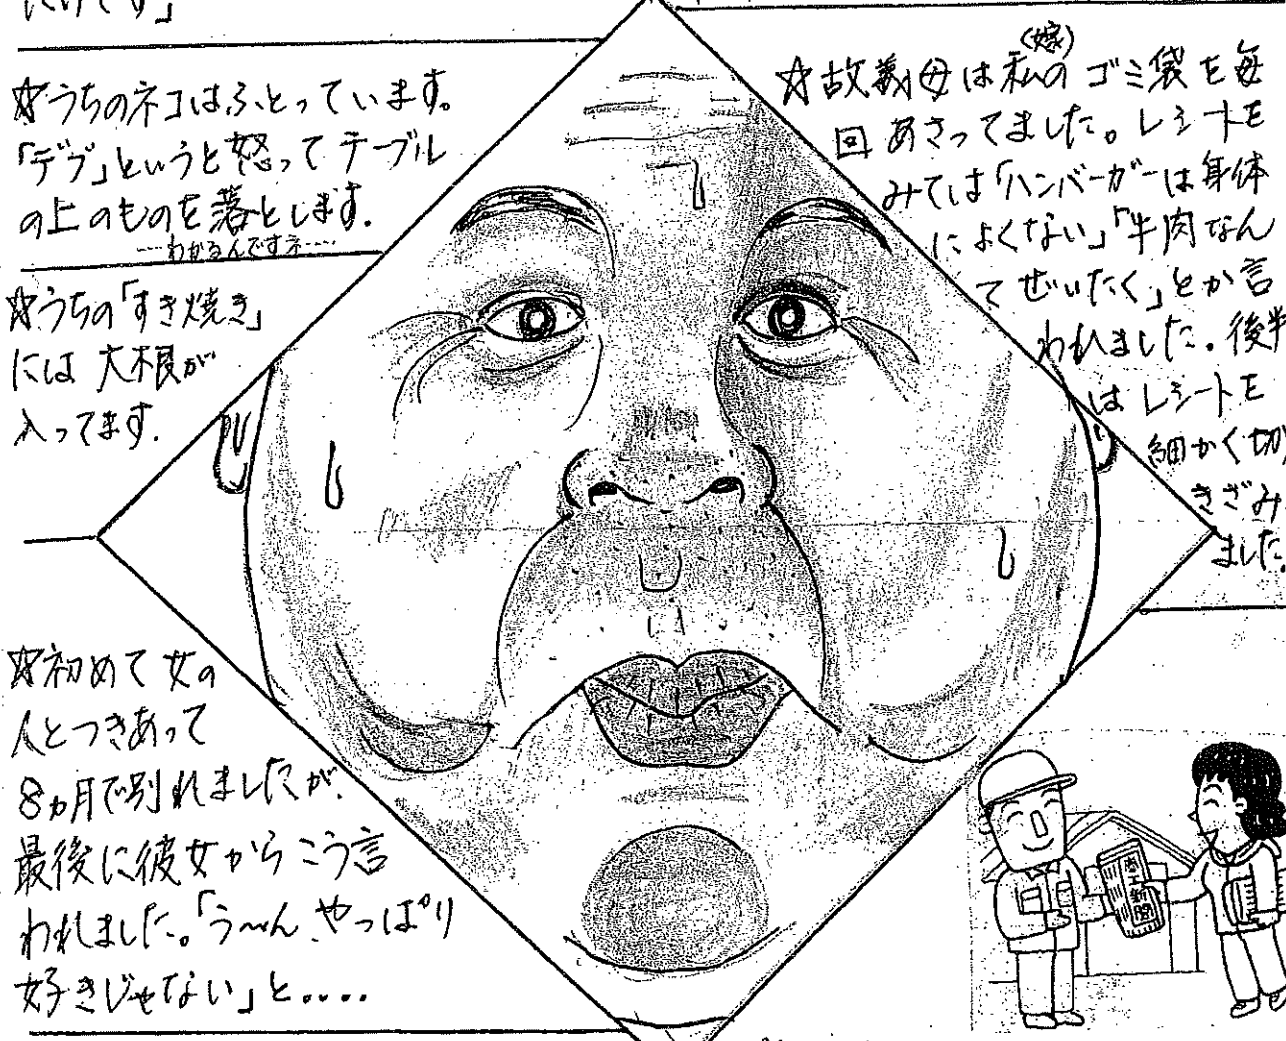 だけです」
☆うちのネコはふとっています。
「デブ」というと怒ってテーブル
の上のものを落とします。
……わかるんですネ……
☆うちの「すき焼き」
には大根が
入ってます。
☆初めて女の
人とつきあって
8ヵ月で別れましたが、
最後に彼女からこう言
われました。「う〜ん、やっぱり
好きじゃない」と‥‥
(嫁)
☆故義母は私のゴミ袋を毎
回あさってました。レシートを
みては「ハンバーガーは身体
によくない」「牛肉なん
てぜいたく」とか言
われました。後半
はレシートを
細かく切り
きざみ
ました。
商工新聞